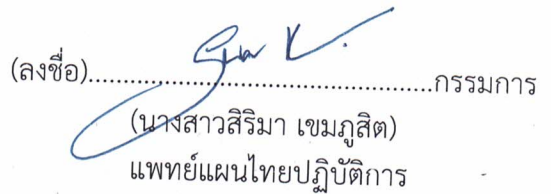 (ลงชื่อ)..................................................กรรมการ
(นางสาวสิริมา เขมภูสิต)
แพทย์แผนไทยปฏิบัติการ